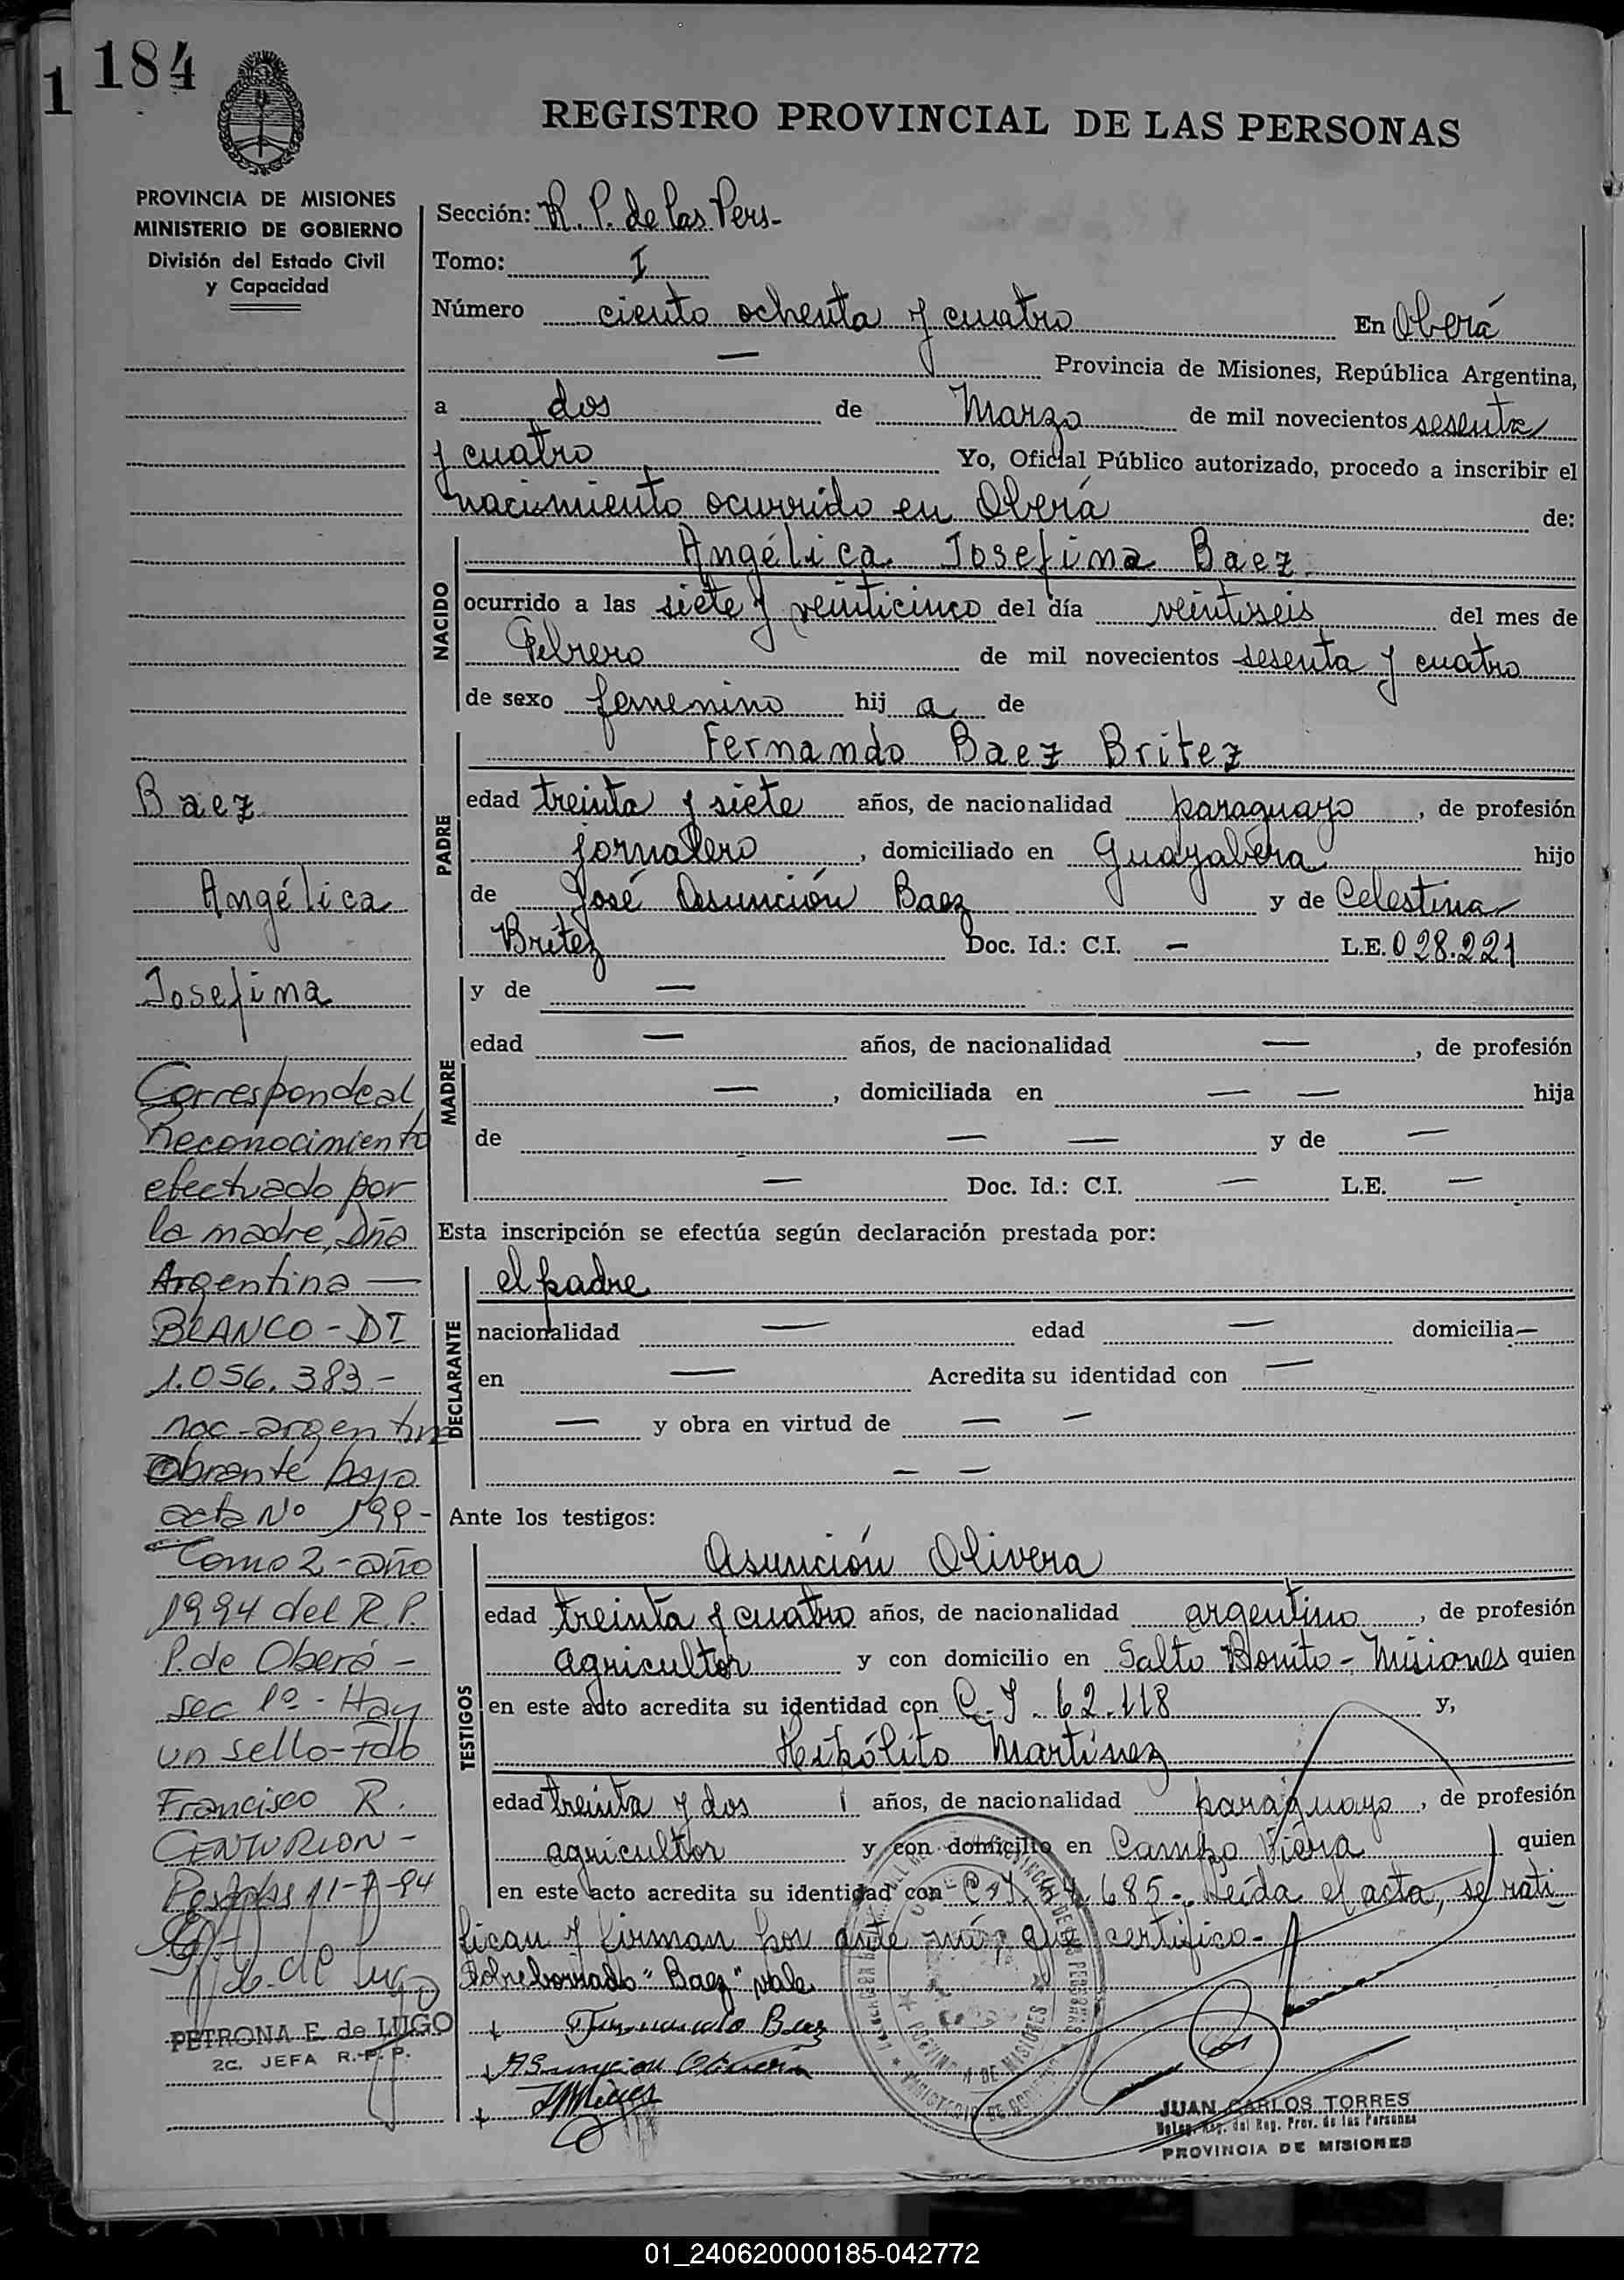 1 184
REGISTRO PROVINCIAL DE LAS PERSONAS
PROVINCIA DE MISIONES
MINISTERIO DE GOBIERNO
División del Estado Civil
y Capacidad
Sección: R. P. de las Pers-
Tomo: I
Número ciento ochenta y cuatro En Oberá
— Provincia de Misiones, República Argentina,
a dos de Marzo de mil novecientos sesenta
y cuatro Yo, Oficial Público autorizado, procedo a inscribir el
nacimiento ocurrido en Oberá de:
NACIDO
Angélica Josefina Baez
ocurrido a las siete y veinticinco del día veintiseis del mes de
Febrero de mil novecientos sesenta y cuatro
de sexo femenino hij a de
PADRE
Fernando Baez Britez
edad treinta y siete años, de nacionalidad paraguayo, de profesión
jornalero, domiciliado en Guayabera hijo
de José Asunción Baez y de Celestina
Britez Doc. Id.: C.I. — L.E. 028.221
MADRE
y de —
edad — años, de nacionalidad —, de profesión
—, domiciliada en — — hija
de — — y de —
— Doc. Id.: C.I. — L.E. —
Esta inscripción se efectúa según declaración prestada por:
DECLARANTE
el padre
nacionalidad — edad — domicilia —
en — Acredita su identidad con —
— y obra en virtud de — —
— —
Ante los testigos:
TESTIGOS
Asunción Olivera
edad treinta y cuatro años, de nacionalidad argentino, de profesión
agricultor y con domicilio en Salto Bonito - Misiones quien
en este acto acredita su identidad con C.I. 62.118 y,
Hipólito Martinez
edad treinta y dos años, de nacionalidad paraguayo, de profesión
agricultor y con domicilio en Campo Viera quien
en este acto acredita su identidad con C.I. 685.- Leída el acta, se rati
fican y firman por ante mí, que certifico.-
Sobreborrado "Baez" vale
Fernando Baez
Asuncion Olivera
JUAN CARLOS TORRES
Deleg. Reg. del Reg. Prov. de las Personas
PROVINCIA DE MISIONES
Baez
Angélica
Josefina
Corresponde al
Reconocimiento
efectuado por
la madre, Dña
Argentina —
BLANCO - DI
1.056.383 -
nac - argentina
obrante bajo
acta Nº 199 -
Tomo 2 - año
1994 del R.P.
P. de Oberá -
sec 1º - Hay
un sello - fdo
Francisco R.
CENTURION -
Posadas 11-7-94
PETRONA E. de LUGO
2c. JEFA R.P.P.
01_240620000185-042772